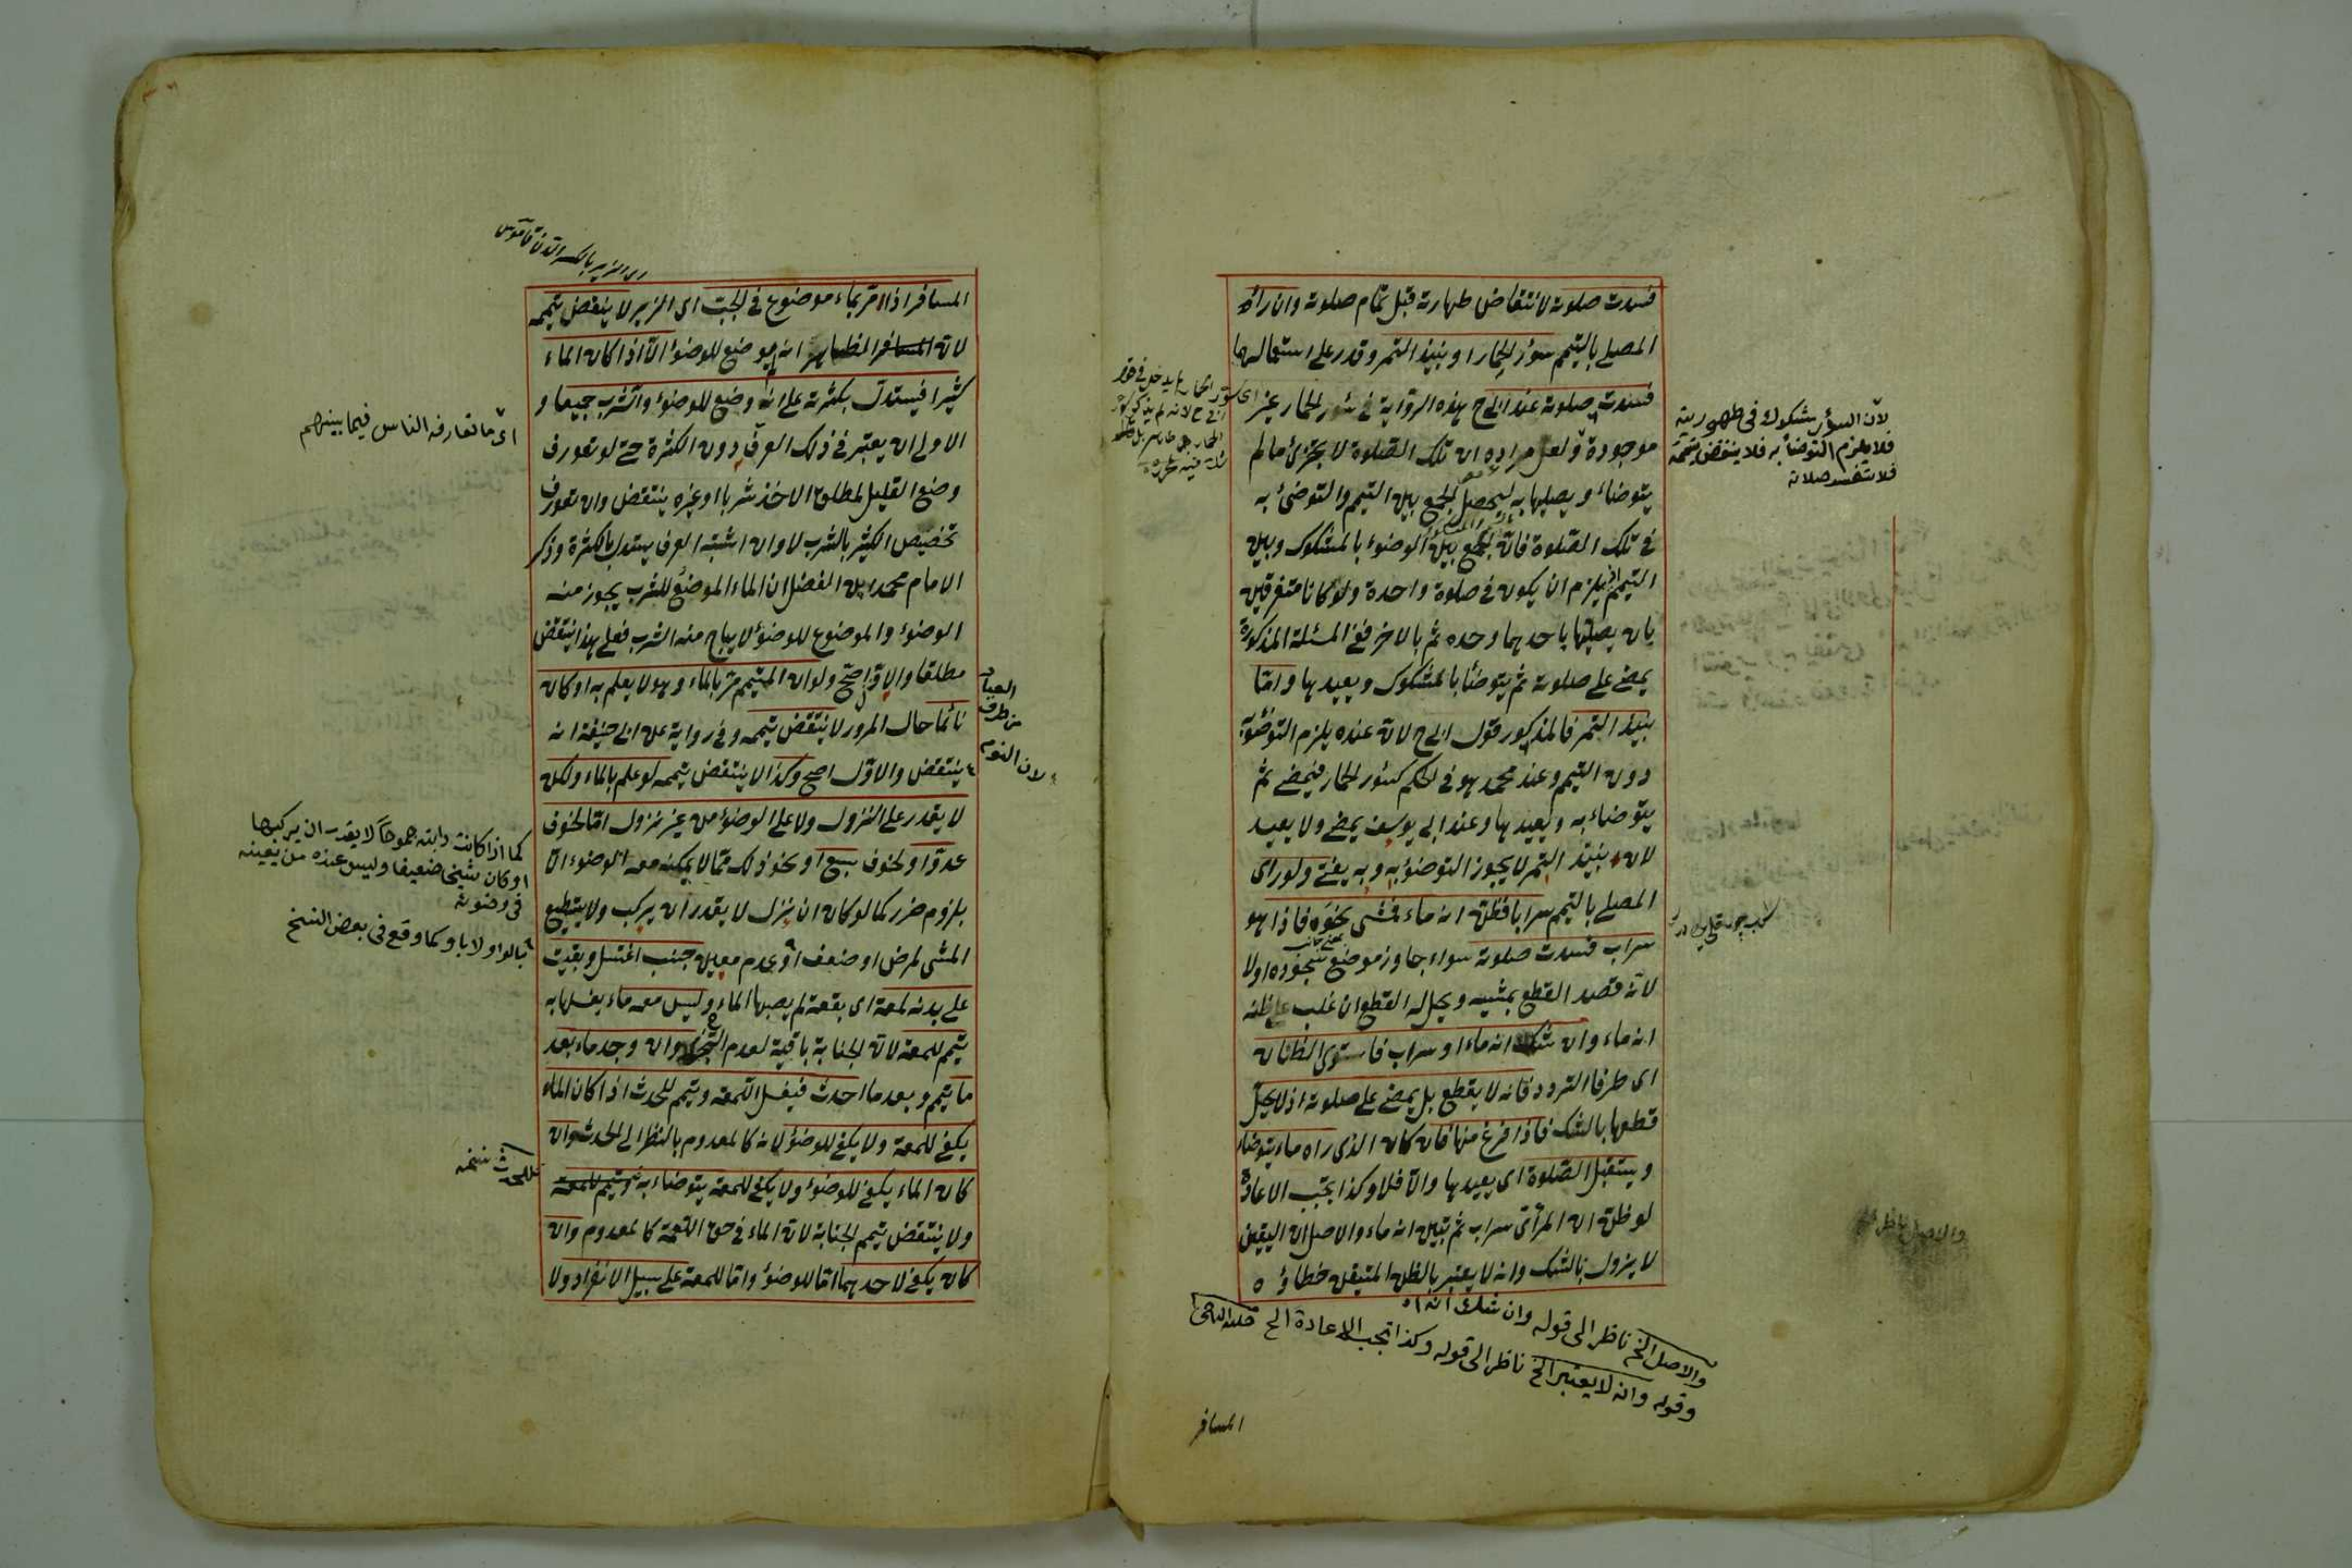 فسدت صلوته لانتقاض طهارته قبل تمام صلوته وان رأى
المصلي بالتيمم سؤر الحمار او نبيذ التمر وقدر على استعمالهما
فسدت صلوته عند ابى ح هذه الرواية في سؤر الحمار غير
موجودة ولعل مراده ان تلك الصلوة لا يجزئ ما لم
يتوضاء ويصليها به ليحصل الجمع بين التيمم والتوضئ به
في تلك الصلوة فان الجمع بين الوضوء بالمشكوك وبين
التيمم يلزم ان يكون في صلوة واحدة ولو كانا متفرقين
بان يصليها باحدهما وحده ثم بالاخر ففي المسئلة المذكورة
يمضي على صلوته ثم يتوضأ بالمشكوك ويعيدها واما
نبيذ التمر فالمذكور قول ابى ح لان عنده يلزم التوضؤ به
دون التيمم وعند محمد هو في الحكم كسؤر الحمار فيمضي ثم
يتوضاء به ويعيدها وعند ابى يوسف يمضي ولا يعيد
لان نبيذ التمر لا يجوز التوضؤ به وبه يفتى ولو رأى
المصلي بالتيمم سرابا فظن انه ماء فمشى نحوه فاذا هو
سراب فسدت صلوته سواء جاوز موضع سجوده اولا
لانه قصد القطع بمشيه ويحل له القطع ان غلب على ظنه
انه ماء وان شك انه ماء او سراب فاستوى الظنان
اى طرفا التردد فانه لا يقطع بل يمضي على صلوته اذ لا يحل
قطعها بالشك فاذا فرغ منها فان كان الذى راه ماء يتوضاء
ويستقبل الصلوة اى يعيدها والا فلا وكذا تجب الاعادة
لو ظن ان المرأى سراب ثم تبين انه ماء والاصل ان اليقين
لا يزول بالشك وانه لا يعتبر بالظن المتيقن خطاؤه
لان السؤر مشكوك في طهوريته
فلا يلزم التوضأ به فلا ينتقض تيممه
فلا تفسد صلاته
والاصل الخ ناظر الى قوله وان شك انه اه
وقوله وانه لا يعتبر الخ ناظر الى قوله وكذا تجب الاعادة الخ
المسافر
المسافر اذا مر بماء موضوع في الجب اى الزير لا ينقض تيممه
لان الظاهر انه موضع للوضوء الا اذا كان الماء
كثيرا فيستدل بكثرته على انه وضع للوضوء والشرب جميعا و
الاولى ان يعتبر في ذلك العرف دون الكثرة حتى لو تعورف
وضع القليل لمطلق الاخذ شربا او غيره ينتقض وان تعورف
تخصيص الكثير بالشرب لا وان اشتبه العرف يستدل بالكثرة وذكر
الامام محمد بن الفضل ان الماء الموضع للشرب يجوز منه
الوضوء والموضوع للوضوء لا يباح منه الشرب فعلى هذا ينتقض
مطلقا والاول اصح ولو ان المتيمم مر بالماء وهو لا يعلم به او كان
نائما حال المرور لا ينتقض تيممه وفي رواية عن ابى حنيفة انه
ينتقض والاول اصح وكذا لا ينتقض تيممه لو علم بالماء ولكن
لا يقدر على النزول ولا على الوضوء من غير نزول اما لخوف
عدو او لخوف سبع او نحو ذلك مما لا يمكنه معه الوضوء الا
بلزوم ضرر كما لو كان ان ينزل لا يقدر ان يركب ولا يستطيع
المشى لمرض او ضعف او عدم معين جنب اغتسل وبقيت
على بدنه لمعة اى بقعة لم يصبها الماء وليس معه ماء يغسلها به
يتيمم للمعة لان الجنابة باقية لعدم التجزى وان وجد ماء بعد
ما تيمم وبعد ما احدث فيغسل اللمعة ويتيمم للحدث اذا كان الماء
يكفي للمعة ولا يكفي للوضوء لانه كالمعدوم بالنظر الى الحدث وان
كان الماء يكفي للوضوء ولا يكفي للمعة يتوضاء به ويتيمم للمعة
ولا ينتقض تيمم الجنابة لان الماء في حق اللمعة كالمعدوم وان
كان يكفي لاحدهما اما للوضوء واما للمعة على سبيل الانفراد ولا
اى الزير بالكسر الدن قاموس
اى ما تعارفه الناس فيما بينهم
لان النوم
من طرف
العباد
كما اذا كانت دابته جموحا لا يقدر ان يركبها
او كان شيخا ضعيفا وليس عنده من يعينه
في وضوئه
بالواو لا باو كما وقع في بعض النسخ
للحدث نسخه